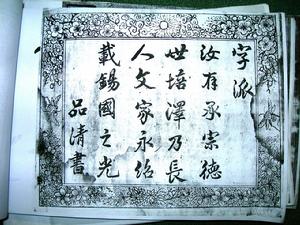 字派
汝有承宗德
世培澤乃長
人文家永紹
載錫國之光
品清書